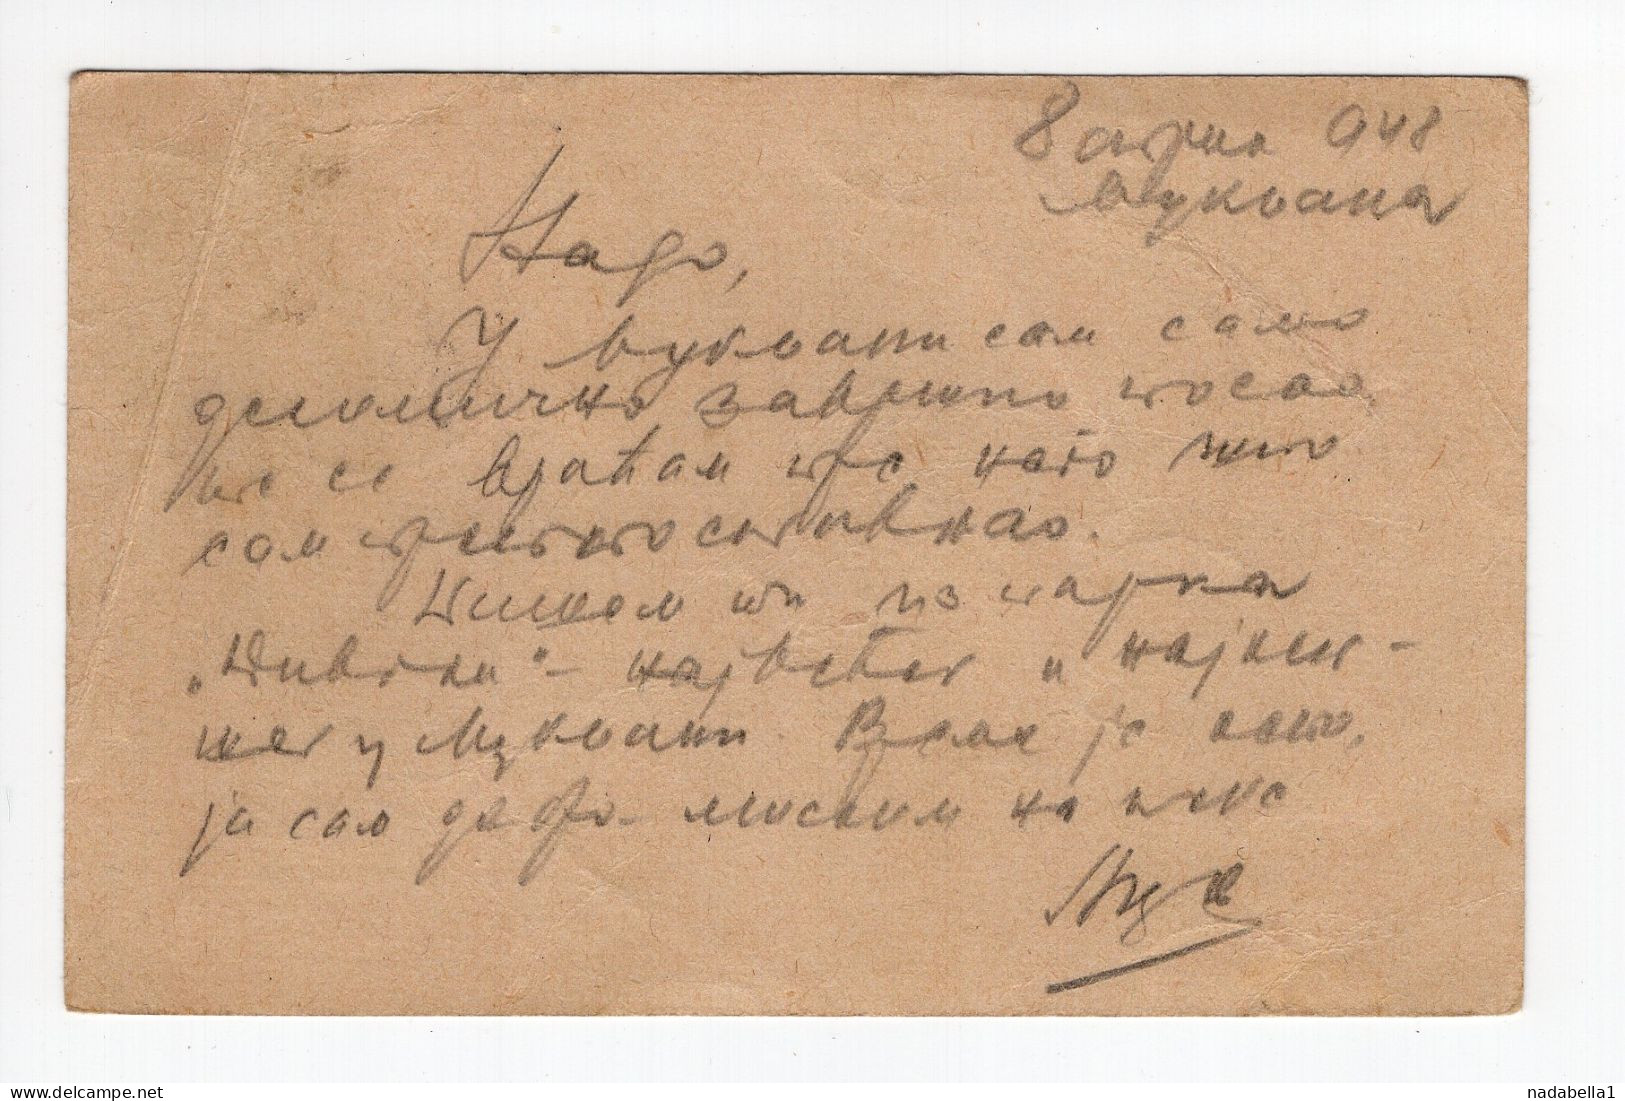 8 април 948
Љубљана
Надо,
У Љубљани сам само
деломично завршио посао
па се враћам пре него што
сам претпостављао.
Пишем ти из парка
„Тиволи" – највећег и најлеп-
шег у Љубљани. Време је лепо,
ја сам добро – мислим на тебе
nadabella1